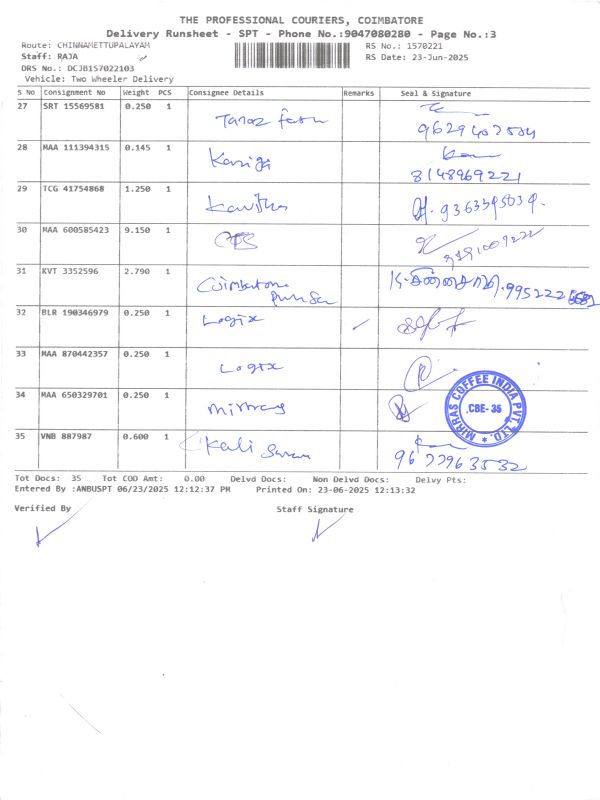 THE PROFESSIONAL COURIERS, COIMBATORE
Delivery Runsheet - SPT - Phone No.:9047080280 - Page No.:3
Route: CHINNAMETTUPALAYAM RS No.: 1570221
Staff: RAJA RS Date: 23-Jun-2025
DRS No.: DCJB157022103
Vehicle: Two Wheeler Delivery
S No Consignment No Weight PCS Consignee Details Remarks Seal & Signature
27 SRT 15569581 0.250 1
28 MAA 111394315 0.145 1 Kaniga
8148969221
29 TCG 41754868 1.250 1 Kavitha
30 MAA 600585423 9.150 1
31 KVT 3352596 2.790 1 Coimbatore
32 BLR 190346979 0.250 1 Logix
33 MAA 870442357 0.250 1 Logix
34 MAA 650329701 0.250 1 MIRRAS COFFEE INDIA PVT. LTD. CBE- 35
35 VNB 887987 0.600 1 Kali
9677963532
Tot Docs: 35 Tot COD Amt: 0.00 Delvd Docs: Non Delvd Docs: Delvy Pts:
Entered By :ANBUSPT 06/23/2025 12:12:37 PM Printed On: 23-06-2025 12:13:32
Verified By Staff Signature